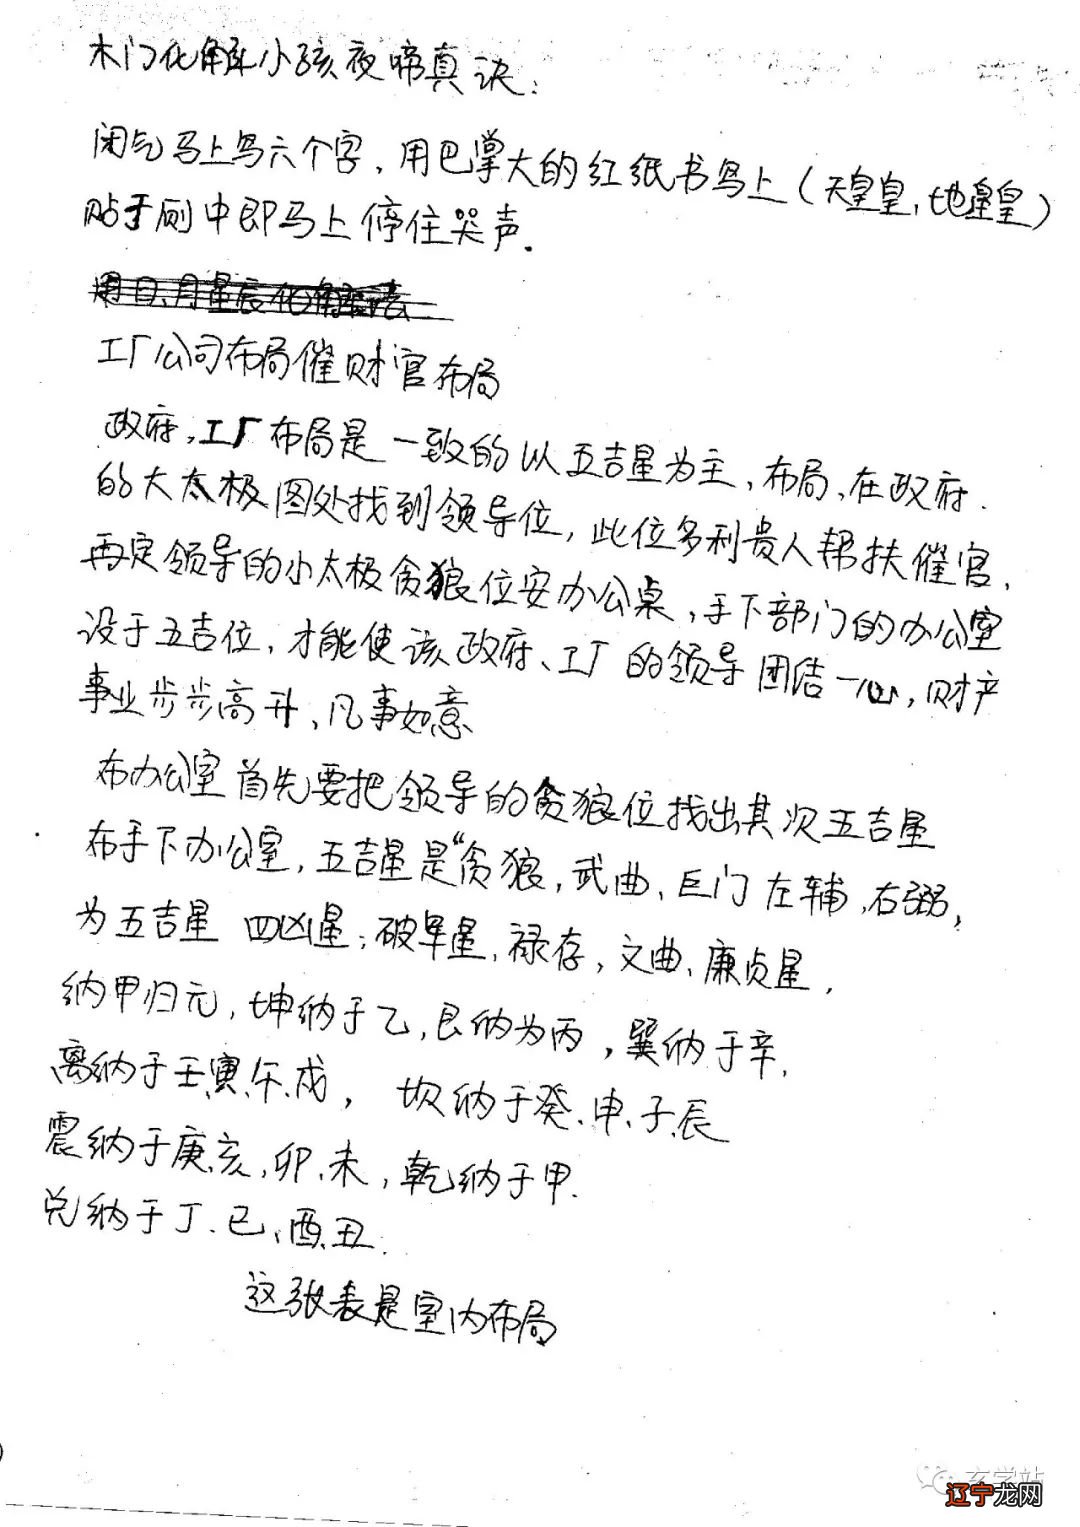 木门化解小孩夜啼真诀：
闭气马上写六个字，用巴掌大的红纸书写上（天皇皇，地皇皇）
贴于厕中即马上停住哭声.
用日、月星辰化解法
工厂公司布局催财官布局
政府，工厂布局是一致的以五吉星为主，布局，在政府.
的大太极图处找到领导位，此位多利贵人帮扶催官，
再定领导的小太极贪狼位安办公桌，手下部门的办公室
设于五吉位，才能使该政府、工厂的领导团结一心，财产
事业步步高升，凡事如意
布办公室首先要把领导的贪狼位找出其次五吉星
布手下办公室，五吉星是“贪狼，武曲、巨门左辅，右弼，
为五吉星 四凶星；破军星，禄存，文曲、廉贞星，
纳甲归元，坤纳于乙，艮纳为丙，巽纳于辛，
离纳于壬、寅、午、戌， 坎纳于癸、申、子、辰
震纳于庚、亥，卯、未，乾纳于甲.
兑纳于丁、巳、酉、丑.
这张表是室内布局
玄学站
辽宁龙网